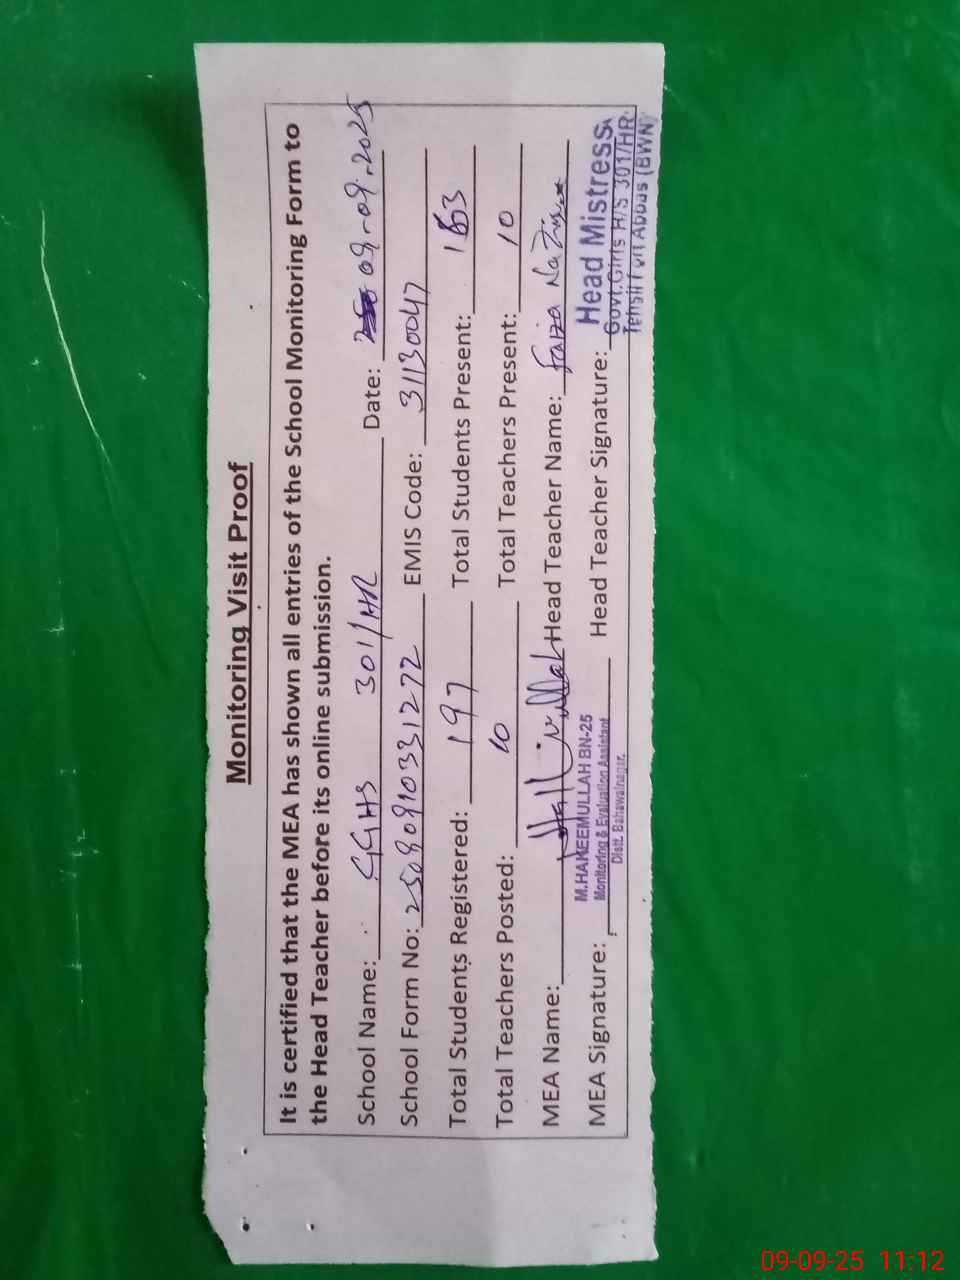 Monitoring Visit Proof
It is certified that the MEA has shown all entries of the School Monitoring Form to
the Head Teacher before its online submission.
School Name: GGHS 301/HR Date: 09-09-2025
School Form No: 2509091031272 EMIS Code: 31130047
Total Students Registered: 197 Total Students Present: 163
Total Teachers Posted: 10 Total Teachers Present: 10
MEA Name: Head Teacher Name: Faiza Nazir
MEA Signature: Head Teacher Signature:
M.HAKEEMULLAH BN-25
Monitoring & Evaluation Assistant
Distt. Bahawalnagar.
Head Mistress
Govt.Girls H/S 301/HR
Tehsil Fort Abbas (BWN)
09-09-25 11:12